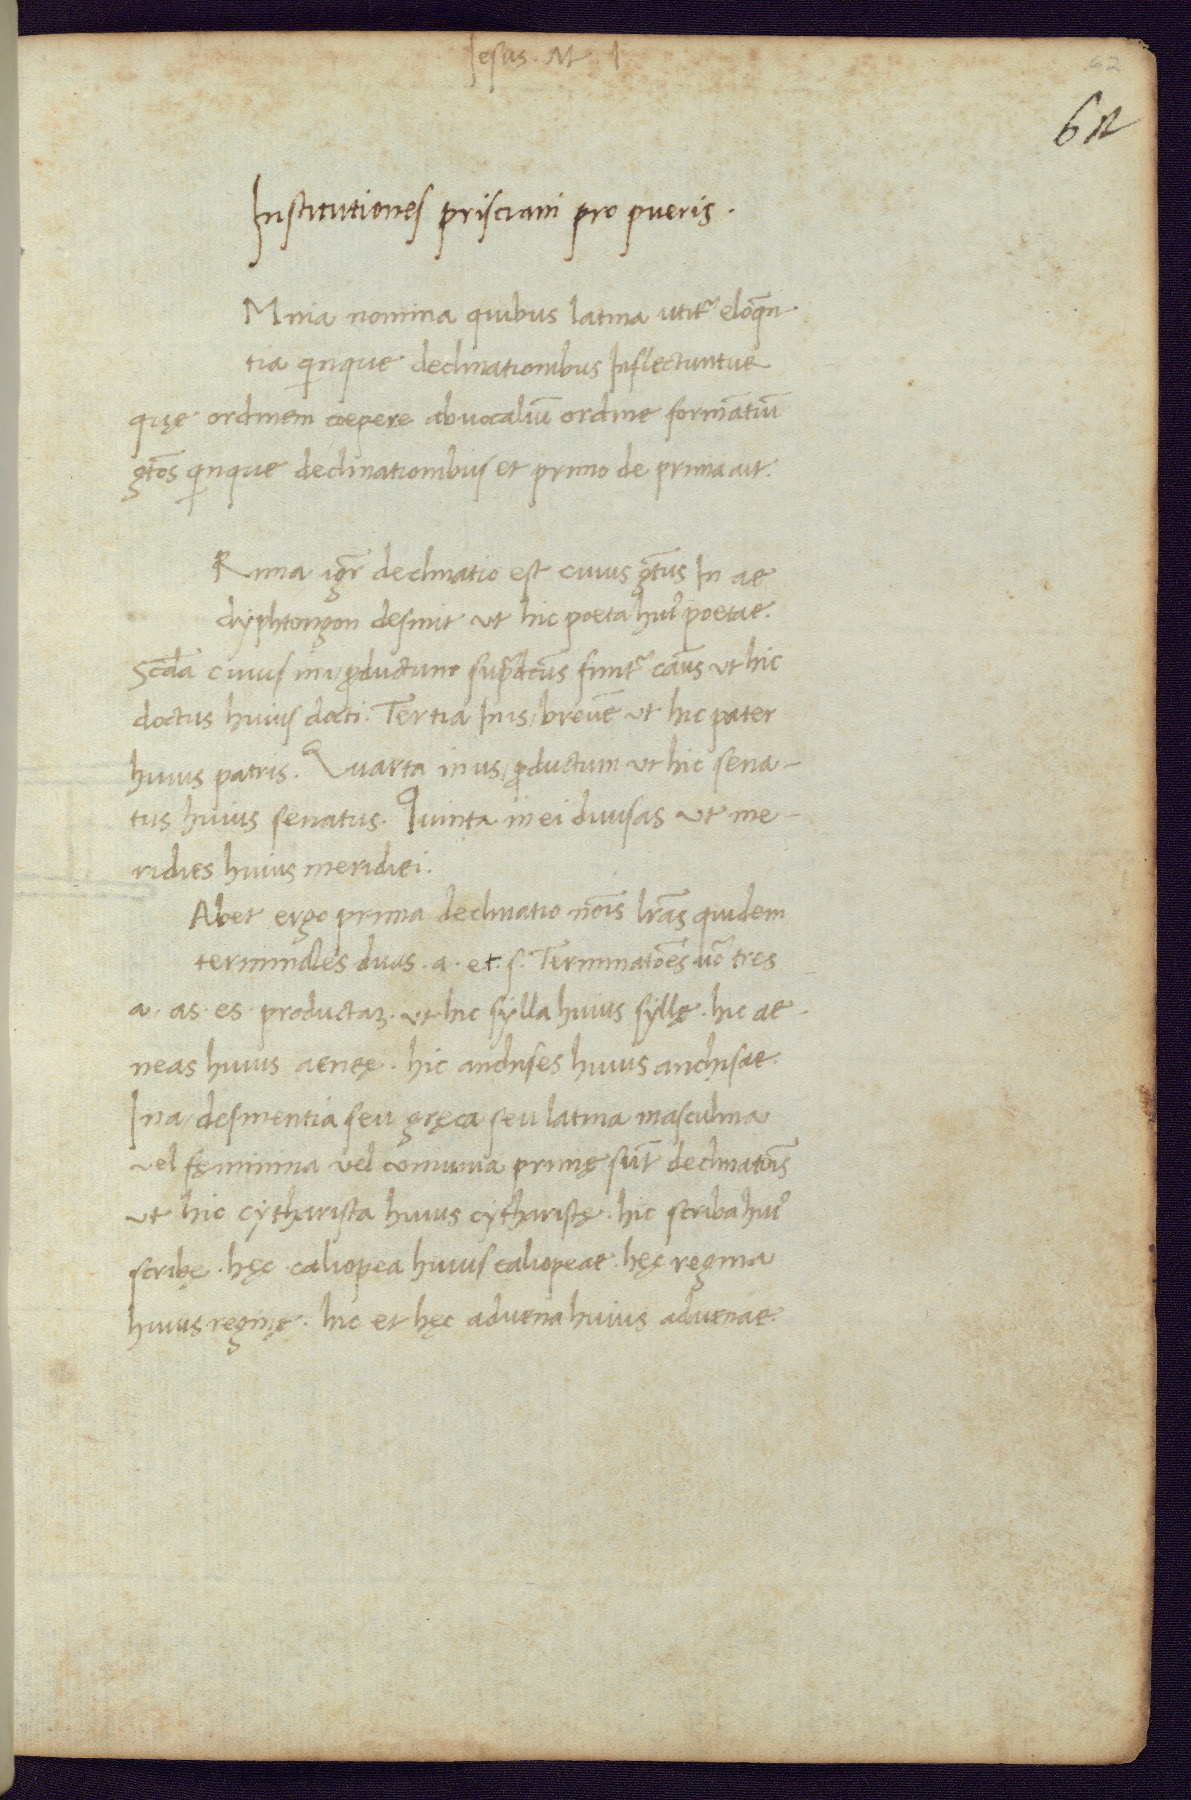 Jesus. M. I
62
62
Institutiones prisciani pro pueris.
Mnia nomina quibus latina utit᷑ eloq̄n
tia quinque declinationibus Inflectuntur
quę ordinem coepere ab vocaliū ordine formātiū
gtōs quinque declinationibus et primo de prima ait.
Rima igr̄ declinatio est cuius gt̄us In ae
dyphtongon desinit ut hic poeta huiꝰ poetae.
Scd̄a cuius in i productum supradictus finit᷑ cāus ut hic
doctus huius docti. Tertia In is breuē ut hic pater
huius patris. Quarta in us productum ut hic sena-
tus huius senatus. Quinta in ei diuisas ut me-
ridies huius meridiei.
Abet ergo prima declinatio nōis lrās quidem
terminales duas. a. et. s. Terminatōes uō tres
a. as. es. productaꝫ. ut hic sylla huius syllę. hic ae-
neas huius aenęę. hic anchises huius anchisae.
In a desinentia seu gręca seu latina masculina
uel fęminina uel comunia primę sūt declinatiōis
ut hic cytharista huius cytharistę. hic scriba huiꝰ
scribę. hęc caliopea huius caliopeae. hęc regina
huius reginę. hic et hęc aduena huius aduenae.